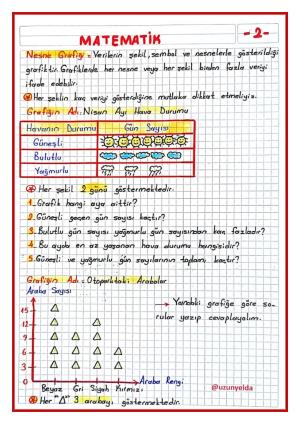 MATEMATİK
-2-
Nesne Grafiği: Verilerin şekil, sembol ve nesnelerle gösterildiği
grafiktir. Grafiklerde her nesne veya her şekil birden fazla veriyi
ifade edebilir.
Her şeklin kaç veriyi gösterdiğine mutlaka dikkat etmeliyiz.
Grafiğin Adı: Nisan Ayı Hava Durumu
Havanın Durumu Gün Sayısı
Güneşli
Bulutlu
Yağmurlu
Her şekil 2 günü göstermektedir.
1. Grafik hangi aya aittir?
2. Güneşli geçen gün sayısı kaçtır?
3. Bulutlu gün sayısı yağmurlu gün sayısından kaç fazladır?
4. Bu ayda en az yaşanan hava durumu hangisidir?
5. Güneşli ve yağmurlu gün sayılarının toplamı kaçtır?
Grafiğin Adı: Otoparktaki Arabalar
Araba Sayısı
15
12
9
6
3
0
Beyaz Gri Siyah Kırmızı
Araba Rengi
→ Yandaki grafiğe göre so-
rular yazıp cevaplayalım.
@uzunyelda
Her "△" 3 arabayı göstermektedir.